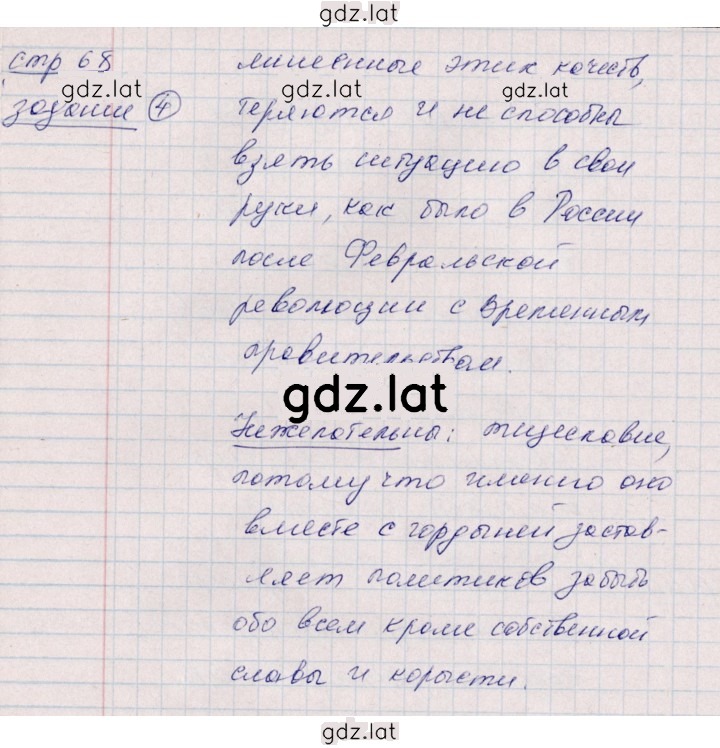 gdz.lat
стр 68
gdz.lat
задание 4
лишенные этих качеств,
gdz.lat
теряются и не способны
взять ситуацию в свои
руки, как было в России
после Февральской
революции с Временным
правительством.
gdz.lat
Нежелательны: тщеславие,
потому что именно оно
вместе с гордыней застав-
ляет политиков забыть
обо всем кроме собственной
славы и корысти.
gdz.lat